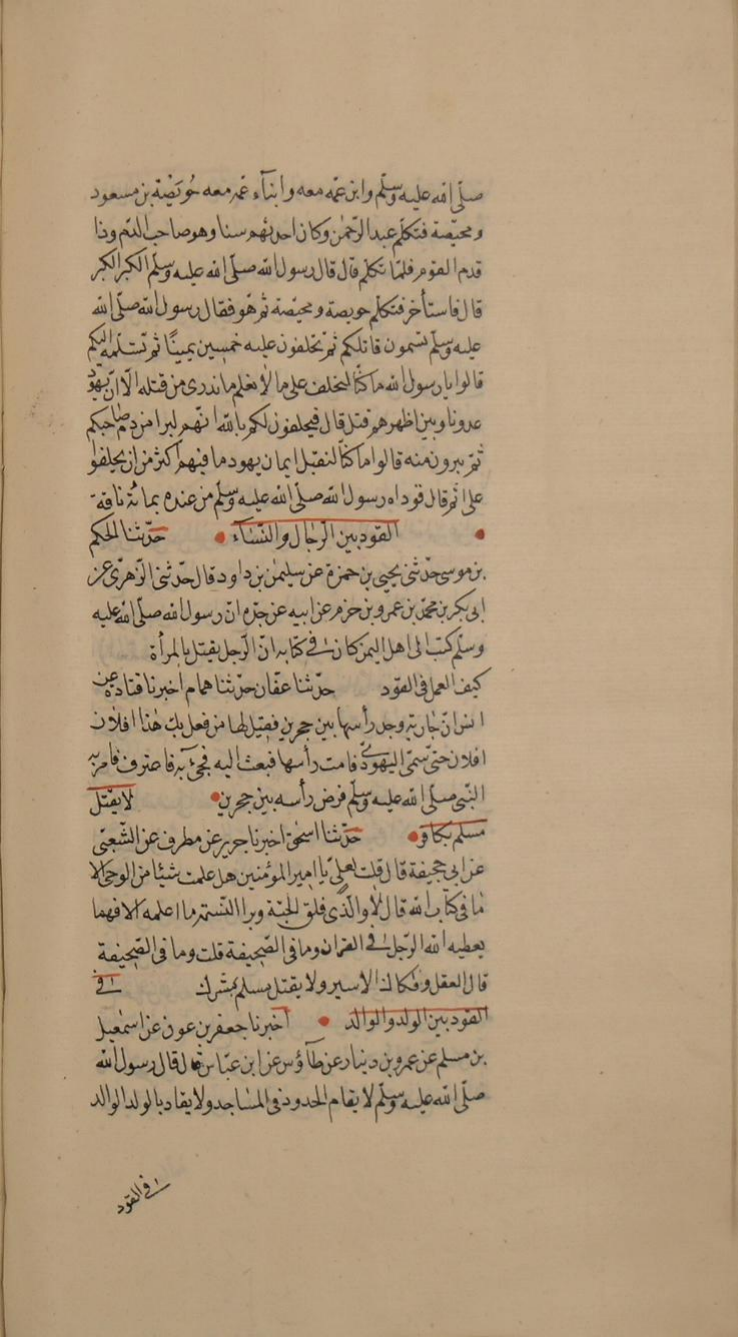 صلّى الله عليه وسلّم وابن عمّه معه وابنآء عمّه معه حُوَيِّصة بن مسعود
ومحيّصة فتكلّم عبد الرّحمٰن وكان احدثهم سنا وهو صاحب الدّم وذا
قدم القوم فلمّا تكلّم قال قال رسول الله صلّى الله عليه وسلّم الكبر الكبر
قال فاستأخر فتكلّم حويصة ومحيّصة ثم هو فقال رسول الله صلّى الله
عليه وسلّم تسمون قاتلكم ثم تحلفون عليه خمسين يمينًا ثم تسلّمه اليكم
قالوا يا رسول الله ما كنّا لنحلف على ما لا نعلم ما ندرى من قتله الّا انّ يهود
عدونا وبين اظهرهم قتل قال فيحلفون لكم بالله انّهم لبرا من دم صاحبكم
ثم يبرون منه قالوا ما كنّا لنقبل ايمان يهود ما فيهم اكثر من ان يحلفوا
على اثم قال فوداه رسول الله صلّى الله عليه وسلّم من عنده بمائة ناقة
القود بين الرّجال والنّسآء حدّثنا الحكم
بن موسى حدّثنى يحيى بن حمزة عن سليمٰن بن داود قال حدّثنى الزّهرى عن
ابى بكر بن محمّد بن عمرو بن حزم عن ابيه عن جدّه انّ رسول الله صلّى الله عليه
وسلّم كتب الى اهل اليمن كان فى كتابه انّ الرّجل يقتل بالمرأة
كيف العمل فى القود حدّثنا عفّان حدّثنا همام اخبرنا قتادة عن
انس انّ جارية وجد رأسها بين حجرين فقيل لها من فعل بك هٰذا افلان
افلان حتى سمّى اليهودىّ فامت رأسها فبعث اليه فجىء به فاعترف فامر به
النّبى صلّى الله عليه وسلّم فرض رأسه بين حجرين لا يقتل
مسلم بكافر حدّثنا اسحٰق اخبرنا جرير عن مطرف عن الشّعبى
عن ابى جحيفة قال قلت لعلىّ يا امير المؤمنين هل علمت شيئا من الوحى الا
ما فى كتاب الله قال لا والّذى فلق الحبّة وبرا النّسمة ما اعلمه الا فهما
يعطيه الله الرّجل فى القرآن وما فى الصّحيفة قلت وما فى الصّحيفة
قال العقل وفكاك الاسير ولا يقتل مسلم بمشرك فى
القود بين الولد والوالد اخبرنا جعفر بن عون عن اسمٰعيل
بن مسلم عن عمرو بن دينار عن طآؤس عن ابن عبّاس قال قال رسول الله
صلّى الله عليه وسلّم لا يقام الحدود فى المساجد ولا يقاد بالولد الوالد
فى القود